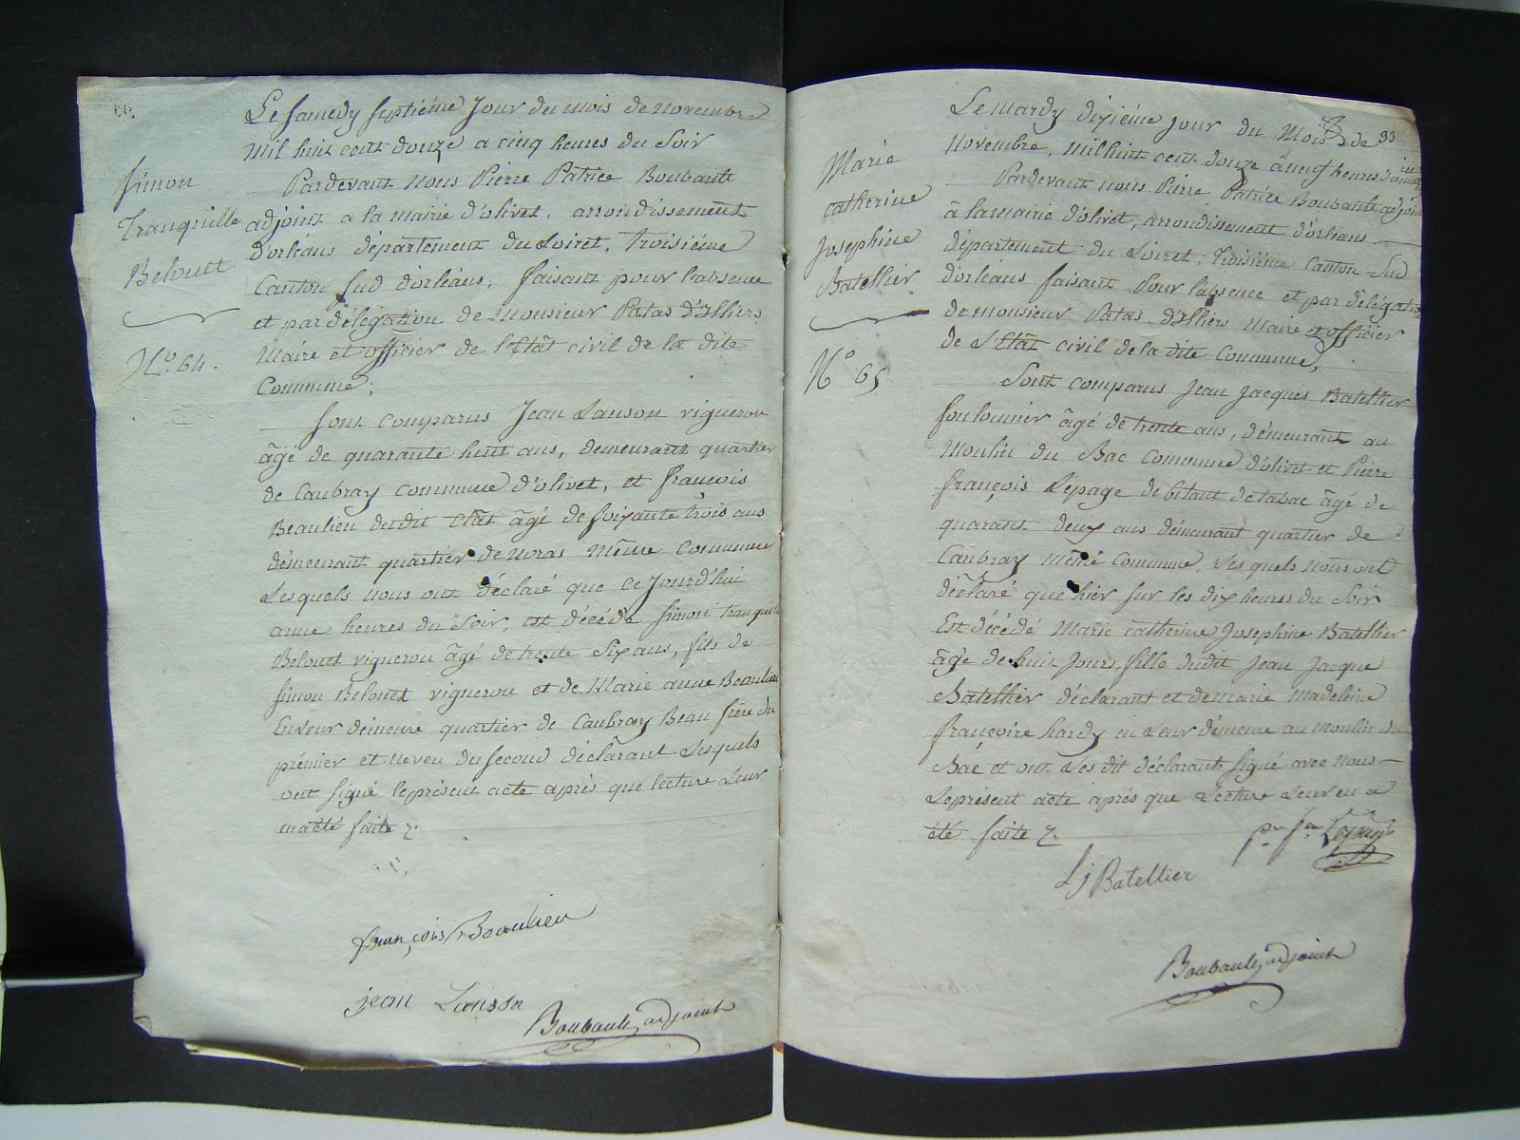 Simon
Tranquille
Belouet
N.° 64.
Le samedy septiéme Jour du mois de novembre
mil huit cent douze a cinq heures du Soir
Pardevant nous Pierre Patrice Boubault
adjoint a la mairie d'olivet, arrondissement
d'orleans département du Loiret, troisiéme
Canton sud d'orléans, faisant pour l'absence
et par délégation de Monsieur Patas d'Illiers
Maire et officier de l'Etat civil de la dite
Commune;
sont comparus Jean Lanson vigneron
âgé de quarante huit ans, demeurant quartier
de Caubray commune d'olivet, et françois
Beaulieu dudit Etat âgé de soixante trois ans
démeurant quartier de noras même commune
Lesquels nous ont déclaré que ce Jourd'hui
onne heures du Soir, est décédé Simon tranquille
Belouet vigneron âgé de trente Six ans, fils de
Simon Belouet vigneron et de Marie anne Beaulieu
En leur démeure quartier de Caubray Beau frère du
prémier et neveu du second déclarant Lesquels
ont signé le présent acte après que lecture Leur
en a été faite
françois Beaulieu
jean Lanson
Boubault adjoint
33
Marie
Catherine
Josephine
Batellier
N° 65
Le mardy dixiéme jour du Mois de
Novembre, mil huit cent douze à neuf heures du matin
Pardevant nous Pierre Patrice Boubault adjoint
à la mairie d'olivet, arrondissement d'orleans
département du Loiret, Troisiéme Canton Sud
d'orléans faisant Pour l'absence et par délégation
de Monsieur Patas d'Illiers Maire et officier
de L'Etat civil de la dite Commune,
Sont comparus Jean Jacques Batellier
foulonnier âgé de trente ans, démeurant au
Moulin du Bac Commune d'olivet et Pierre
françois Lepage debitant de tabac âgé de
quarant deux ans démeurant quartier de
Caubray même Commune Lesquels nous ont
déclaré que hier sur les dix heures du Soir
Est décédé Marie Catherine Josephine Batellier
âgé de huit Jours fille dudit Jean Jacque
Batellier déclarant et de marie Madeleine
françoise hardy en Leur démeure au Moulin du
Bac et ont Les dit déclarant signé avec nous
Le présent acte après que Lecture Leur en a
été faite
Pre fçois Lepage
J j Batellier
Boubault adjoint